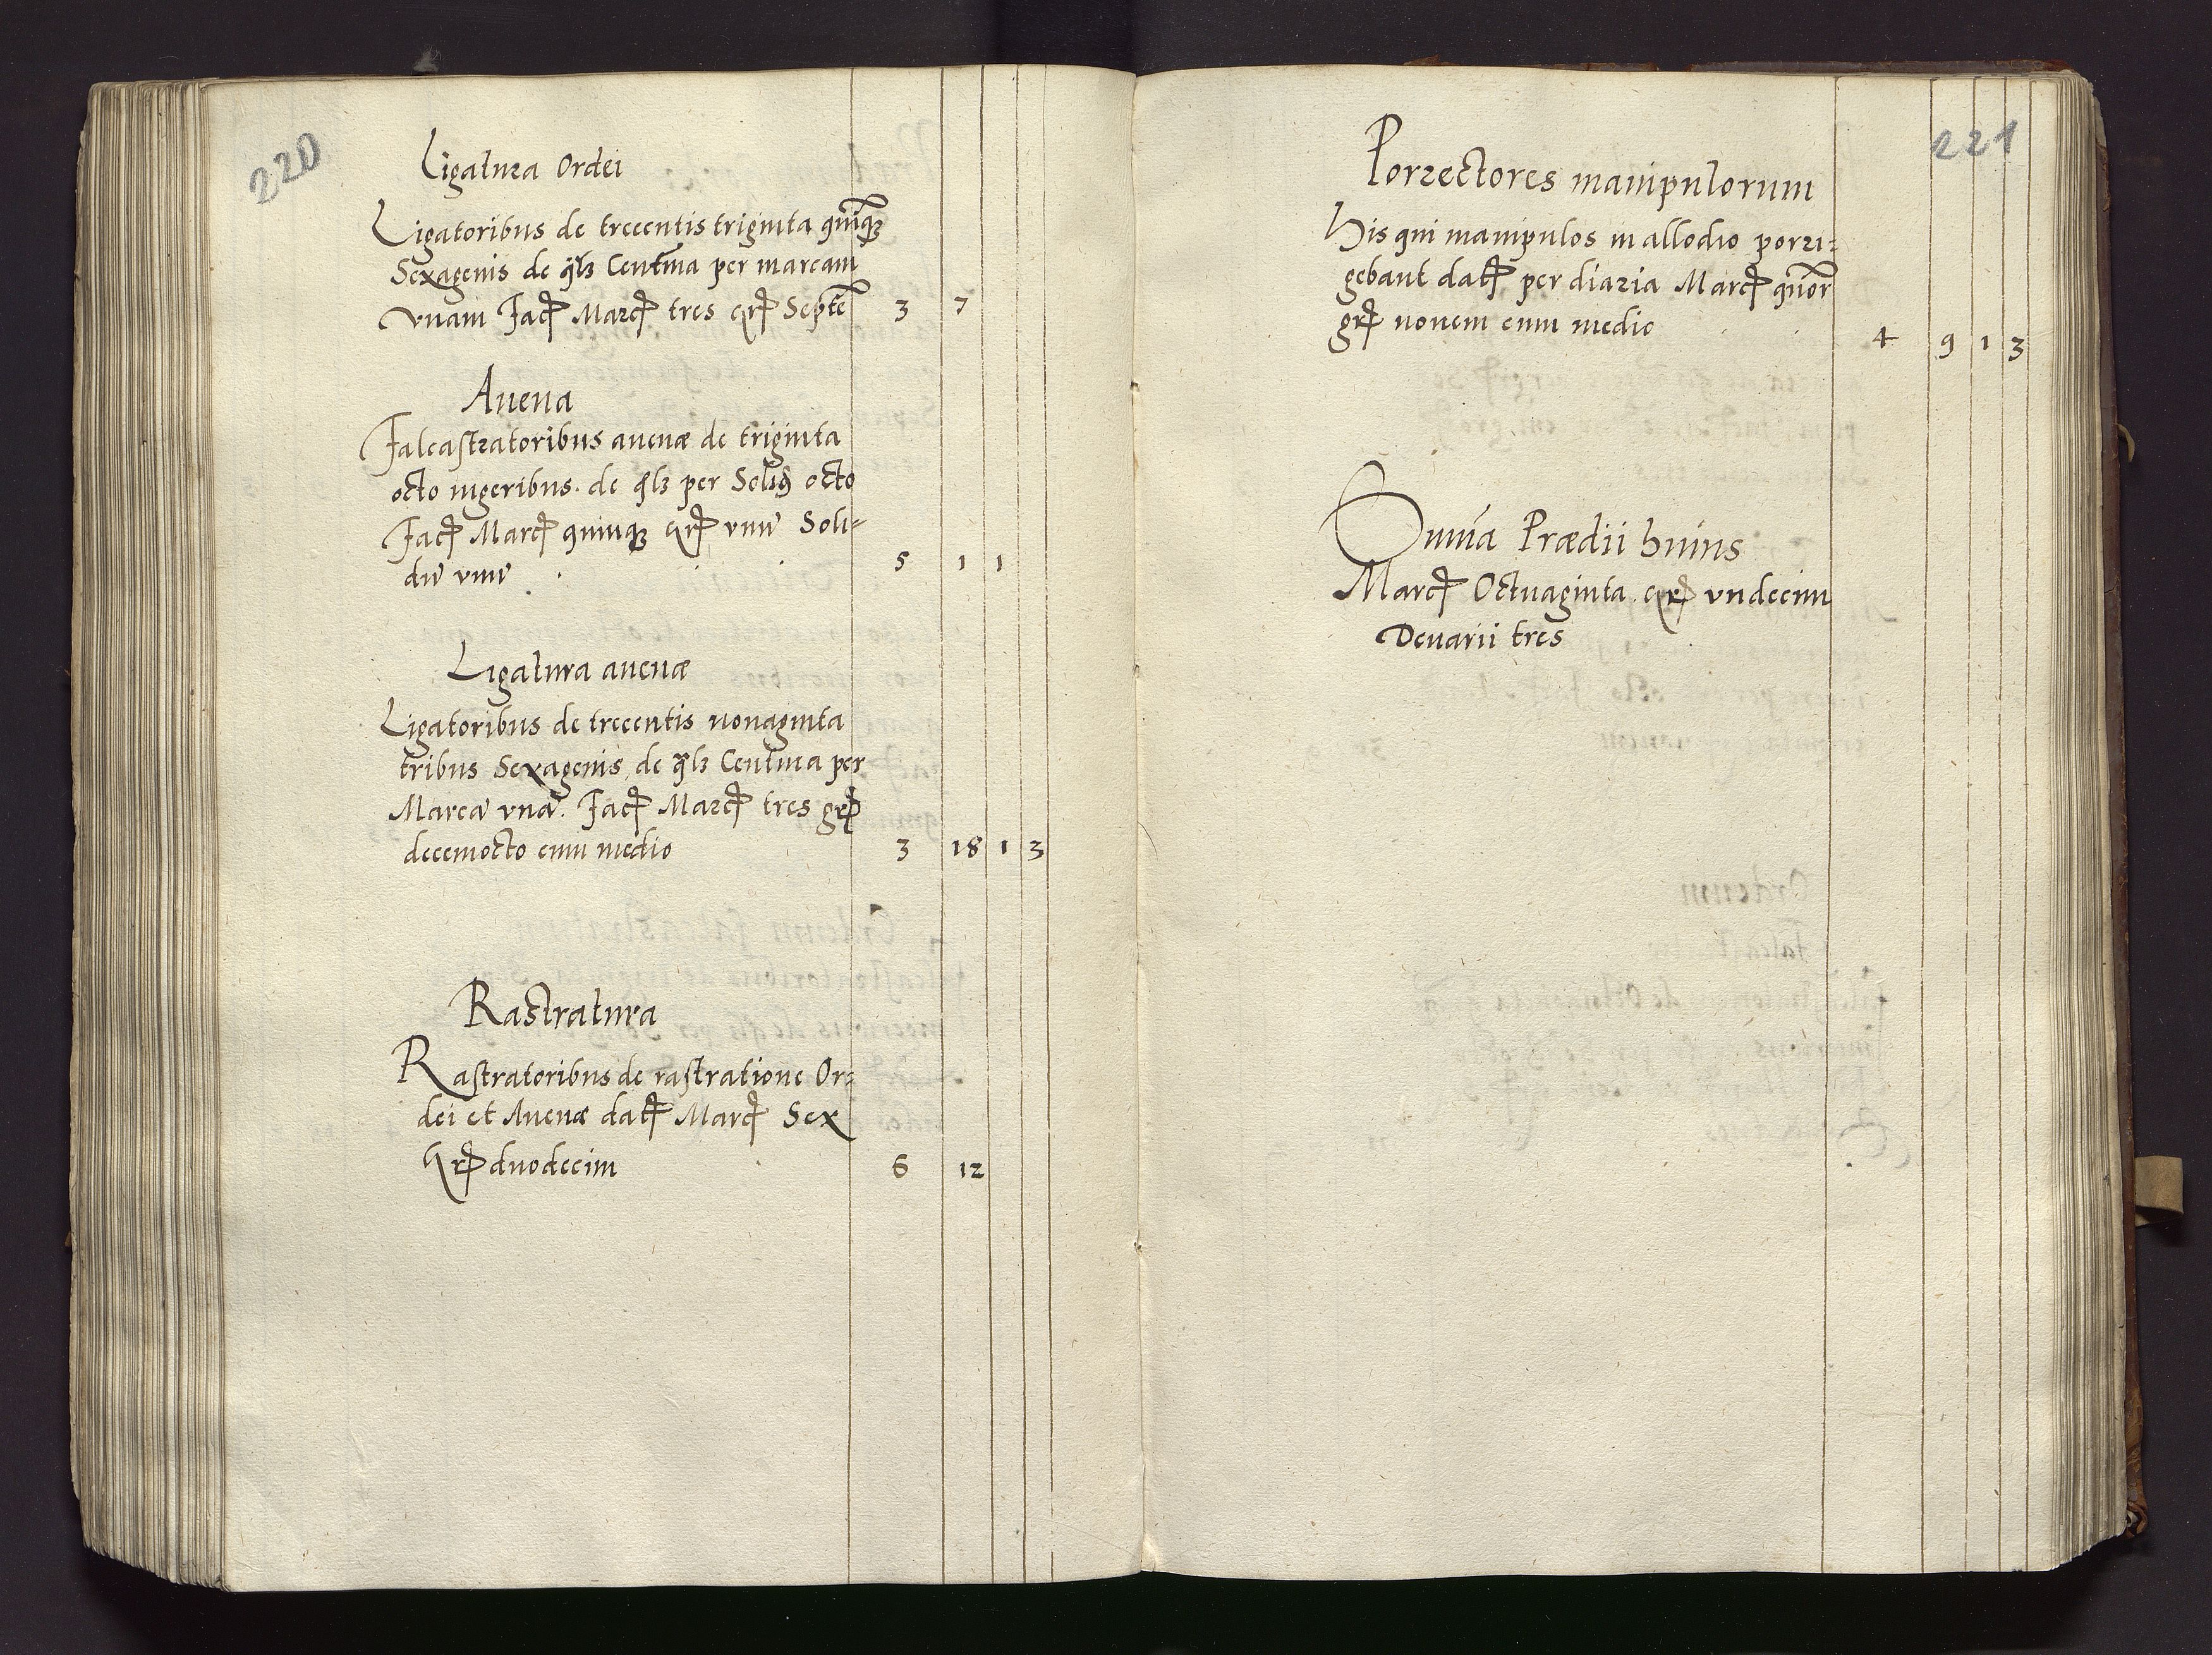 220
Ligatura Ordei
Ligatoribus de trecentis triginta quinq₃
Sexagenis de qlꝫ Centena per marcam
vnam Fac͞ Marc͞ tres gr͞ Septē 3 7
Auena
Falcastratoribus auenæ de triginta
octo iugeribus. de qlꝫ per Solid͞ octo
Fac͞ Marc͞ quinqꝫ gr͞ vnū Soli=
dū vnū 5 1 1
Ligatura auenæ
Ligatoribus de trecentis nonaginta
tribus Sexagenis, de qlꝫ Centena per
Marcā vnā. Fac͞ Marc͞ tres gr͞
decemocto cum medio 3 18 1 3
Rastratura
Rastratoribus de rastratione Or=
dei et Auenæ dat͞ Marc͞ Sex
gr͞ duodecim 6 12
221
Porrectores manipulorum
His qui manipulos in allodio porri=
gebant dat͞ per diaria Marc͞ quor͞
gr͞ nouem cum medio 4 9 1 3
Sum̄a Prædii huius
Marc͞ Octuaginta gr͞ vndecim
Denarii tres